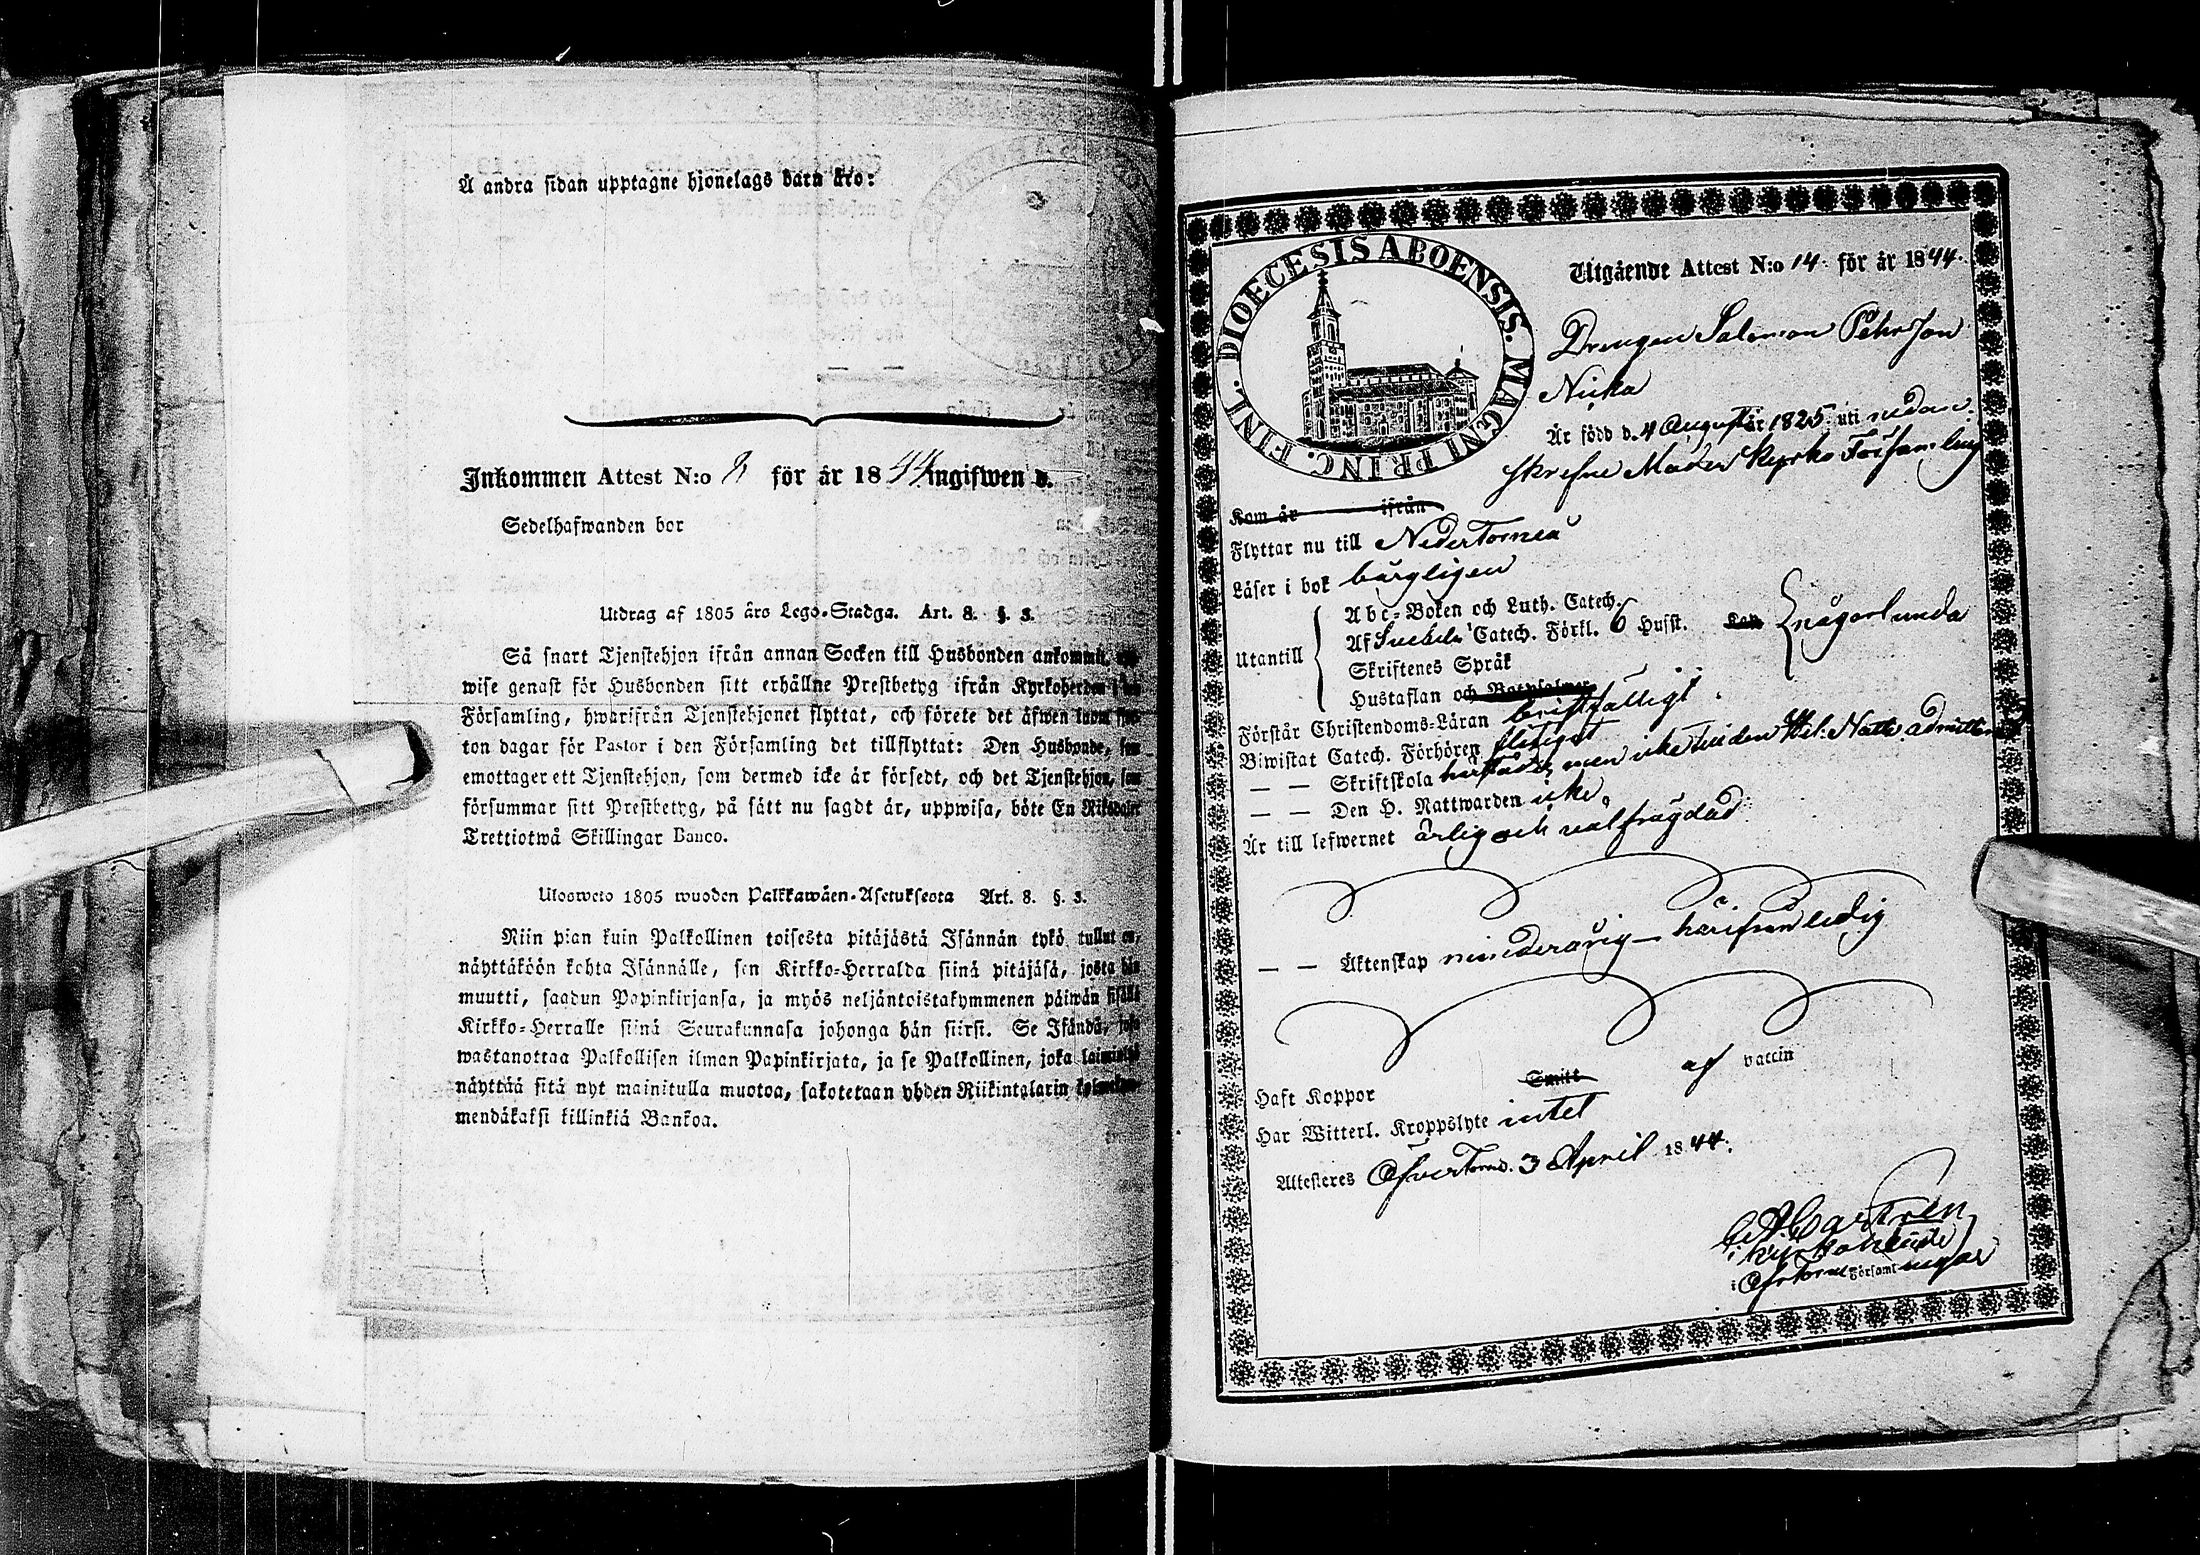 Å andra sidan upptagne hjonelags barn äro:
Inkommen Attest N:o 8 för år 1844 ingifwen d.
Sedelhafwanden bor
Utdrag af 1805 års Lego-Stadga. Art. 8. §. 3.
Så snart Tjenstehjon ifrån annan Socken till Husbonden ankommit,
wise genast för Husbonden sitt erhållne Prestbetyg ifrån Kyrkoherden
Församling, hwarifrån Tjenstehjonet flyttat, och förete det äfwen inom
ton dagar för Pastor i den Församling det tillflyttat: Den Husbonde, som
emottager ett Tjenstehjon, som dermed icke är försedt, och det Tjenstehjon, som
försummar sitt Prestbetyg, på sätt nu sagdt är, uppwisa, böte En Riksdaler
Trettiotwå Skillingar Banco.
Ulosweto 1805 wuoden Palkkawäen-Asetuksesta Art. 8. §. 3.
Niin pian kuin Palkollinen toisesta pitäjästä Isännän tykö tullut on,
näyttäköön kohta Isännälle, sen Kirkko-Herralda siinä pitäjäsä, josta hän
muutti, saadun Papinkirjansa, ja myös neljäntoistakymmenen päiwän sisällä
Kirkko-Herralle siinä Seurakunnasa johonga hän siirsi. Se Isändä, joka
wastanottaa Palkollisen ilman Papinkirjata, ja se Palkollinen, joka
näyttää sitä nyt mainitulla muotoa, sakotetaan yhden Riikintalarin
mendäkaksi killinkiä Bankoa.
DIOECESIS ABOENSIS. MAGNI PRINC. FINL.
Utgående Attest N:o 14. för år 1844.
Drengen Salomon Pehrsson
Nicka
Är född d. 4 Augusti år 1825 uti nedan
skrefne Moder kyrko Församling
Kom år ifrån
Flyttar nu till Neder Torneå
Läser i bok börgligen
Utantill
Abc-Boken och Luth. Catech.
Af Svebeli Catech. Förkl. 6 Hufst. Kan någorlunda
Skriftenes Språk
Hustaflan och Botpsalmer
Förstår Christendoms-Läran bristfälligt
Biwistat Catech. Förhören flitigt
— — Skriftskola härstädes, men icke till den Hel: Nattv. admitterad
— — Den H. Nattwarden icke,
Är till lefwernet ärlig och välfrägdad
— — Äktenskap minderårig — härifrån ledig
Haft Koppor Smitt af vaccin
Har Witterl. Kroppslyte intet
Attesteres Öfver Torneå. 3 April 1844.
C A Castrén
i Öfr Torneå Församlingar